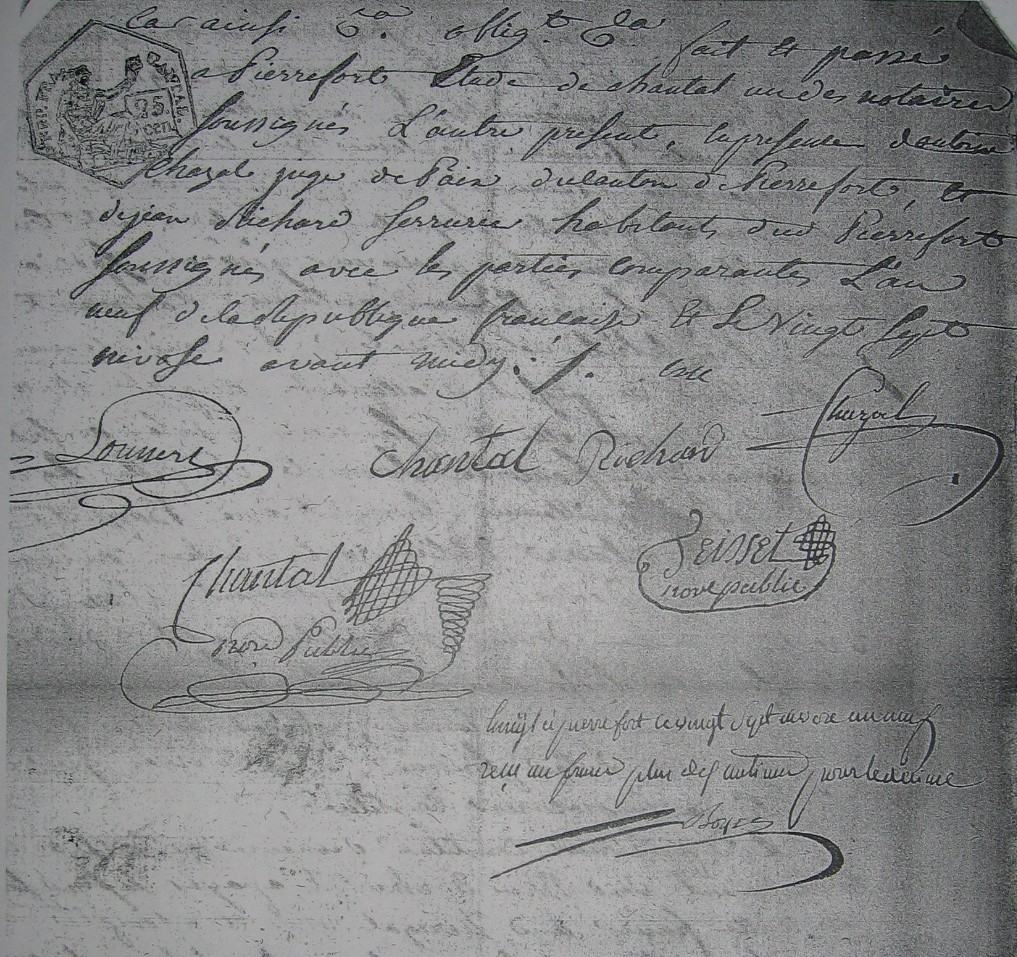 Car ainsi &.ª oblig.t &.ª fait Et passé
a Pierrefort Etude de chantal un des notaires
soussignés L'autre présent, en présence d'antoine
Chazal juge de Paix du canton de Pierrefort, Et
de jean Richard serrurier habitants dud Pierrefort
soussignés avec les parties comparantes L'an
neuf de la Republique francaise Et Le vingt Sept
nivose avant midy
CANTAL
25
cen.
Chantal Richard Chazal
Chantal
Teisset
nore public
nore Public
a pierrefort le vingt sept nivose an neuf
reçu un franc plus dix centimes pour le decime